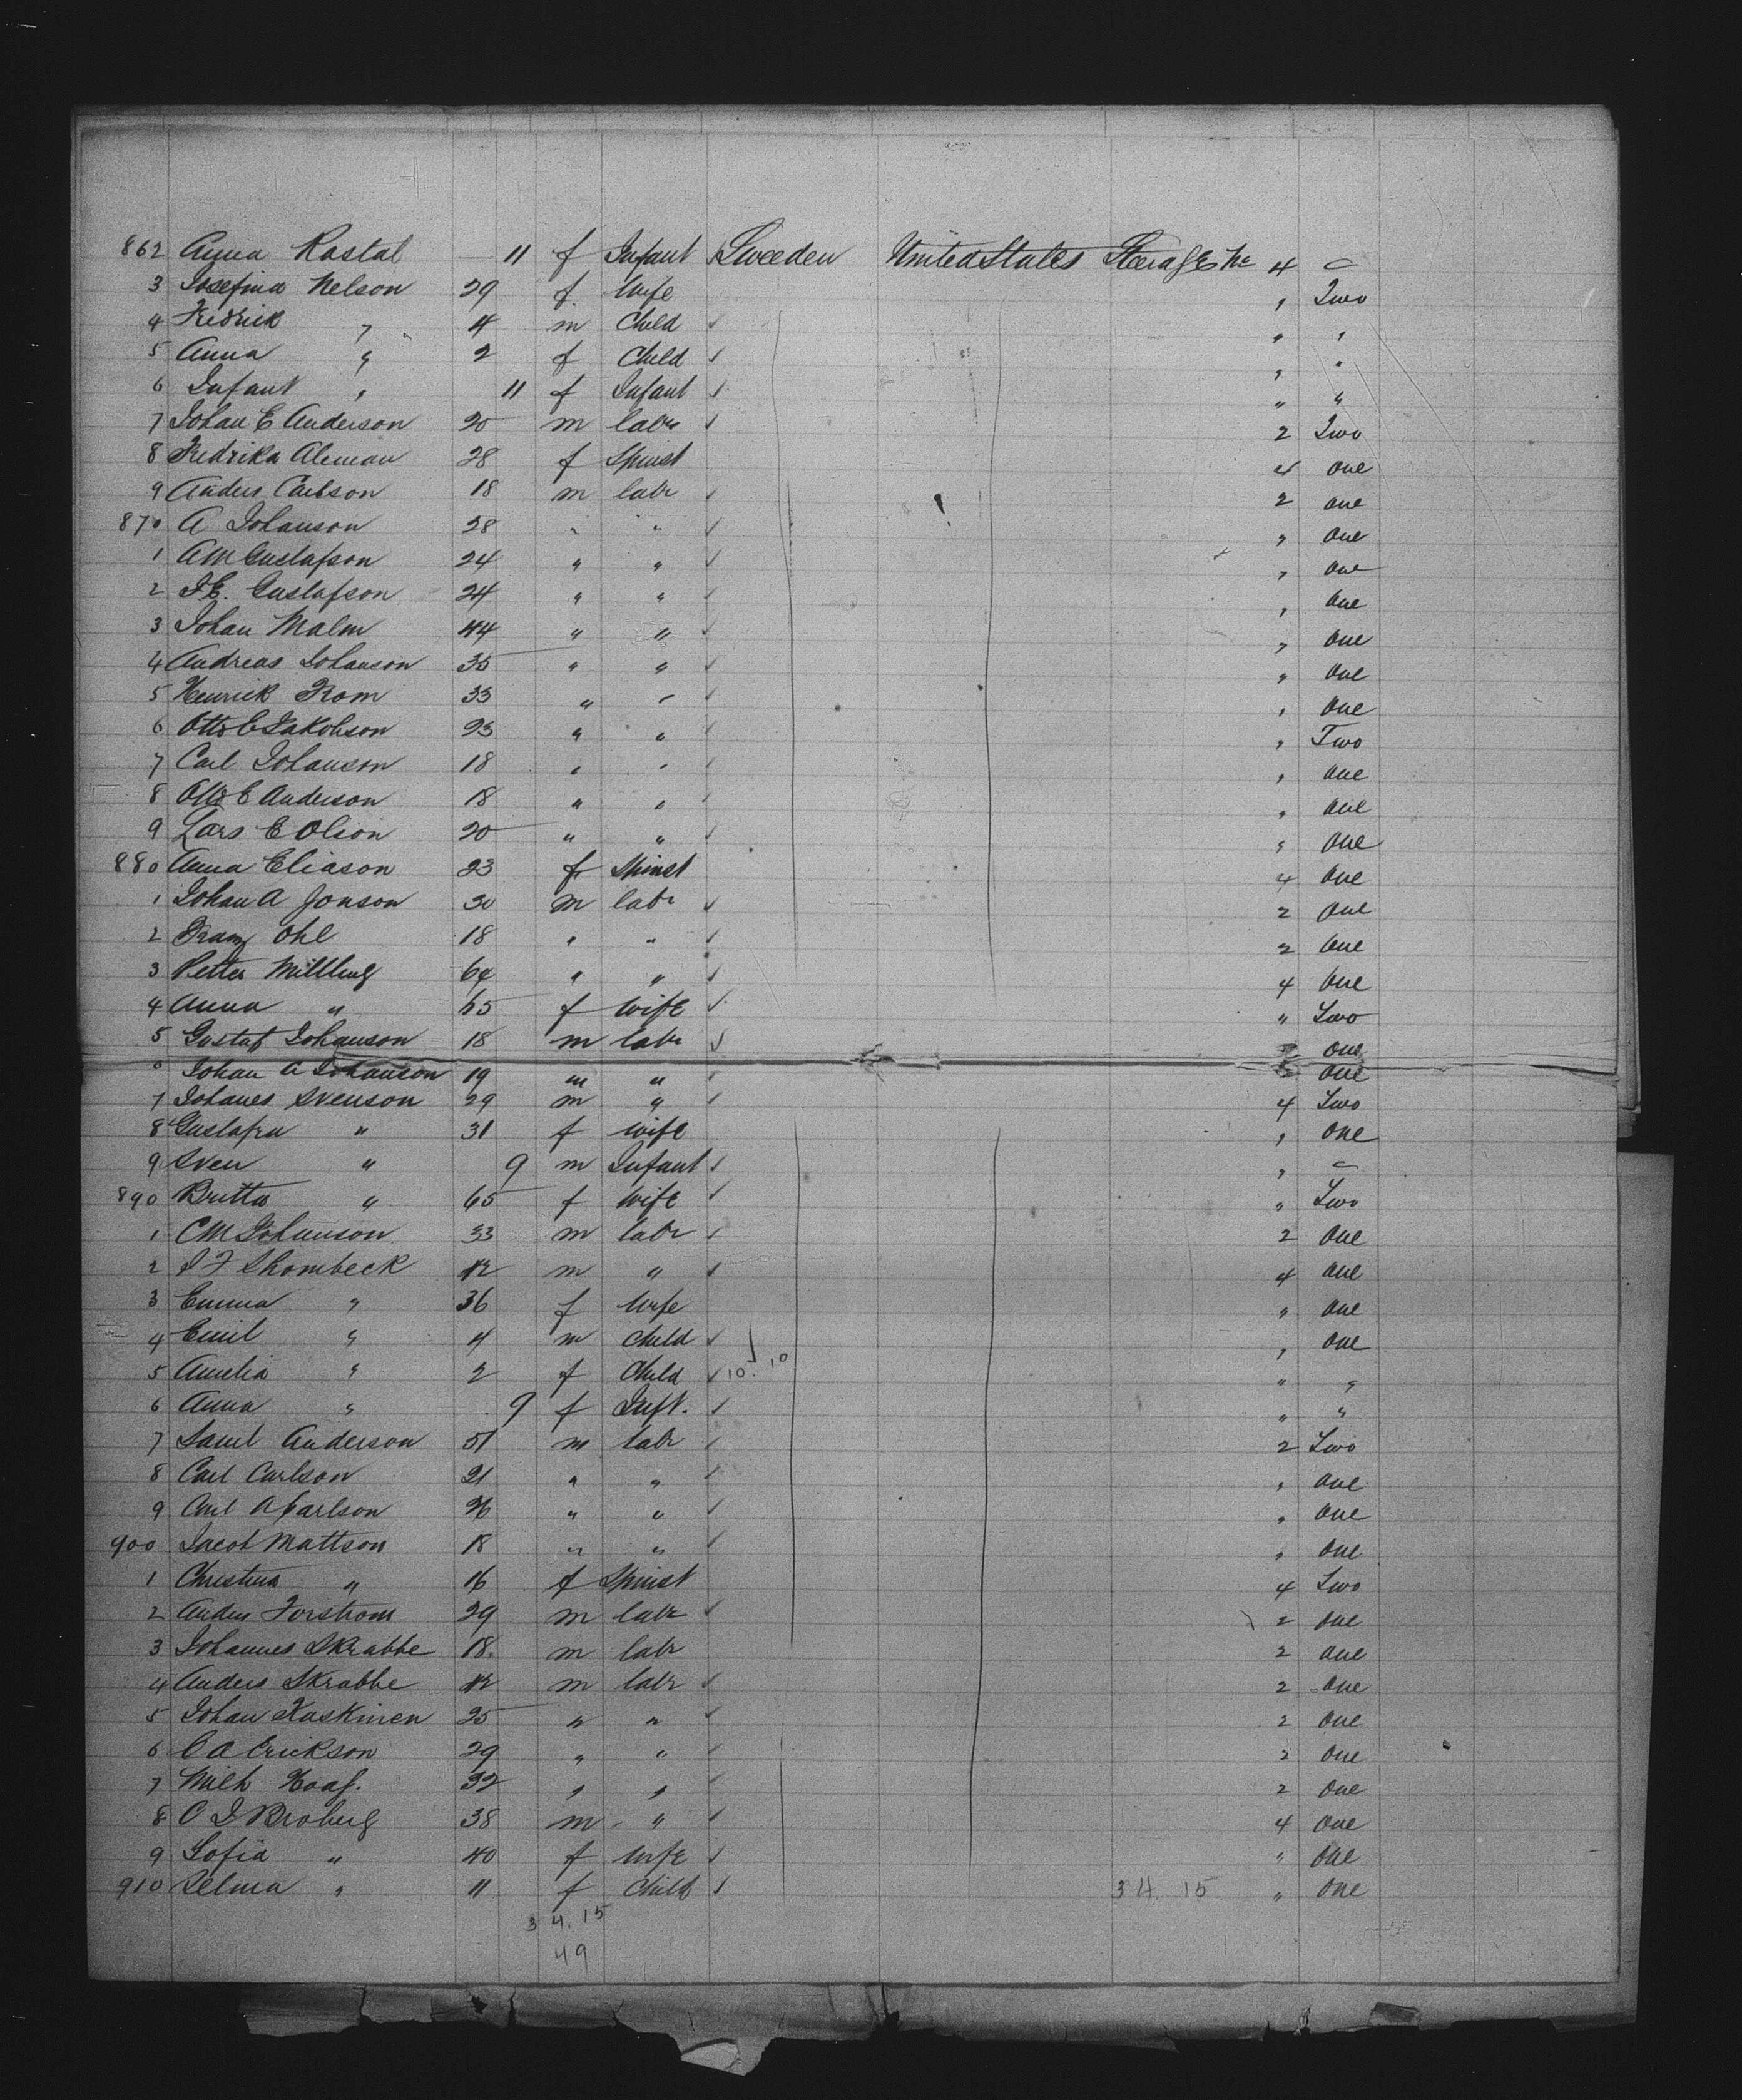 862 Anna Rastal 11 f Infant Sweeden United States Steerage No 4
3 Josefina Nelson 29 f. Wife " Two
4 Fredrick " 4 m Child " "
5 Anna " 2 f Child " "
6 Infant " 11 f Infant " "
7 Johan E Anderson 20 m labr 2 Two
8 Fredrika Aleman 28 f Spinst 4 one
9 Anders Carlson 18 m labr 2 one
870 A Johanson 28 " " " one
1 A M Gustafson 24 " " " one
2 J E. Gustafson 24 " " " one
3 Johan Malm 44 " " " one
4 Andreas Johanson 35 " " " one
5 Henrick From 33 " " " one
6 Otto E Jakobson 23 " " " Two
7 Carl Johanson 18 " " " one
8 Otto E Anderson 18 " " " one
9 Lars E Olson 20 " " " one
880 Anna Eliason 23 f Spinst 4 one
1 Johan A Jonson 30 m labr 2 one
2 Franz Ohl 18 " " 2 one
3 Petter Millbug 64 " " 4 one
4 Anna " 65 f Wife " Two
5 Gustaf Johanson 18 m labr 2 one
6 Johan A Johanson 19 m " 2 one
7 Johanes Svenson 29 m " 4 Two
8 Gustafra " 31 f wife " one
9 Sven " 9 m Infant "
890 Britta " 65 f Wife " Two
1 C M Johanson 33 m labr 2 one
2 J F Shombeck 42 m " 4 one
3 Emma " 36 f Wife " one
4 Emil " 4 m child " one
5 Amelia " 2 f Child 10. 10 " "
6 Anna " 9 f Inft. " "
7 Saml Anderson 51 m labr 2 Two
8 Carl Carlson 21 " " " one
9 Carl A Carlson 26 " " " one
900 Jacob Mattson 18 " " " one
1 Christina " 16 f Spinst 4 Two
2 Anders Forstrom 29 m labr 2 one
3 Johannes Skrabbe 18. m labr 2 one
4 Anders Skrabbe 42 m labr 2 one
5 Johan Kaskinen 25 " " 2 one
6 C A Erickson 29 " " 2 one
7 Mich Haaf. 32 " " 2 one
8 C J Broberg 38 m " 4 one
9 Sofia " 40 f Wife " one
910 Selma " 11 f Child 34. 15 " one
34. 15
49